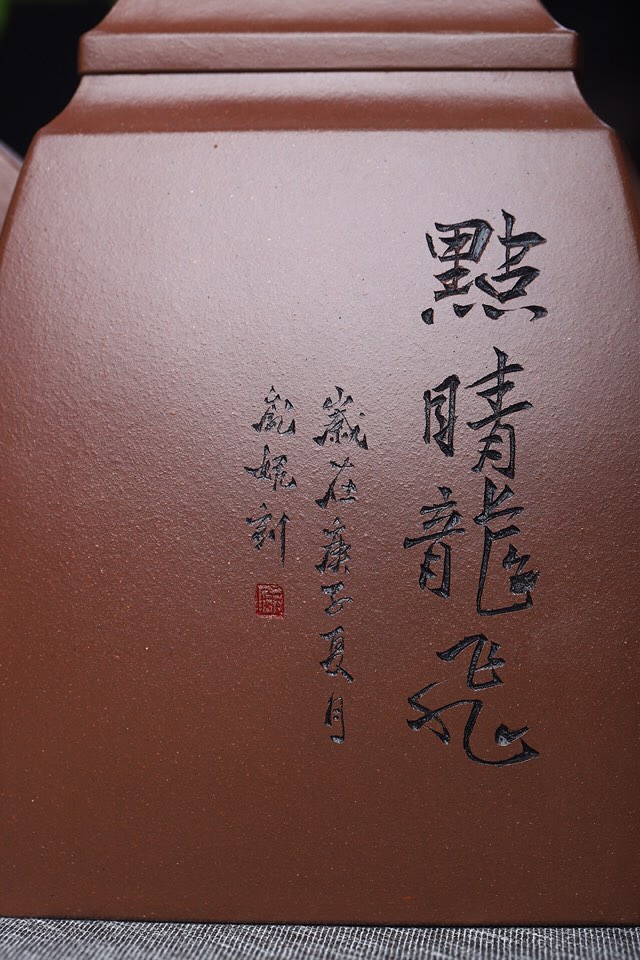 點睛龍飛
歲在庚子夏月
嵐妮刻